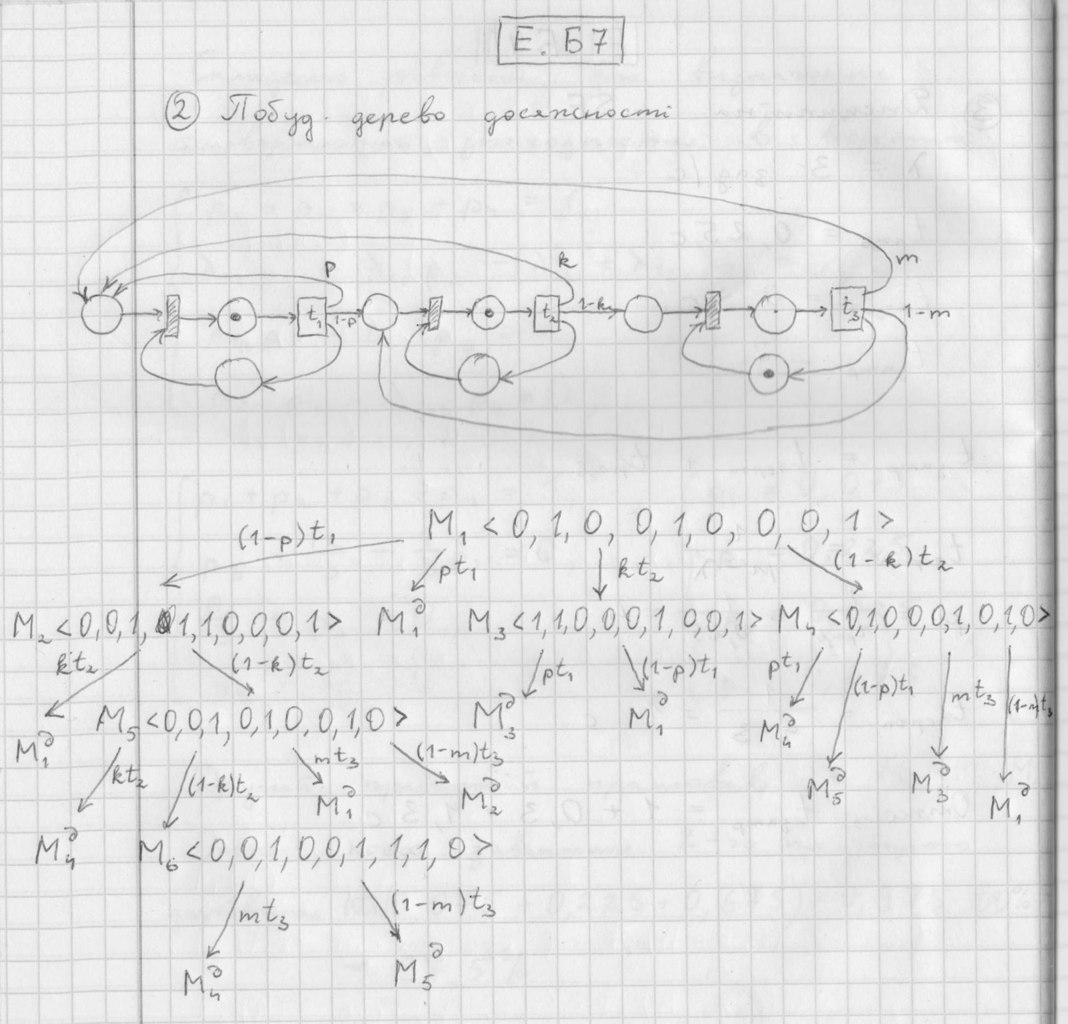 Е. Б7
② Побуд. дерево досяжності
p
k
m
t₁
1-p
t₂
1-k
t₃
1-m
M₁ < 0, 1, 0, 0, 1, 0, 0, 0, 1 >
(1-p)t₁
pt₁
kt₂
(1-k)t₂
M₂ <0,0,1, 1,1,0,0,0,1>
M₁ᵈ
M₃ <1,1,0,0,0,1,0,0,1>
M₄ <0,1,0,0,0,1,0,1,0>
kt₂
(1-k)t₂
pt₁
(1-p)t₁
pt₁
(1-p)t₁
mt₃
(1-m)t₃
M₁ᵈ
M₅ <0,0,1,0,1,0,0,1,0>
M₃ᵈ
M₁ᵈ
M₄ᵈ
M₅ᵈ
M₃ᵈ
M₁ᵈ
kt₂
(1-k)t₂
mt₃
(1-m)t₃
M₄ᵈ
M₁ᵈ
M₂ᵈ
M₆ <0,0,1,0,0,1,1,1,0>
mt₃
(1-m)t₃
M₄ᵈ
M₅ᵈ